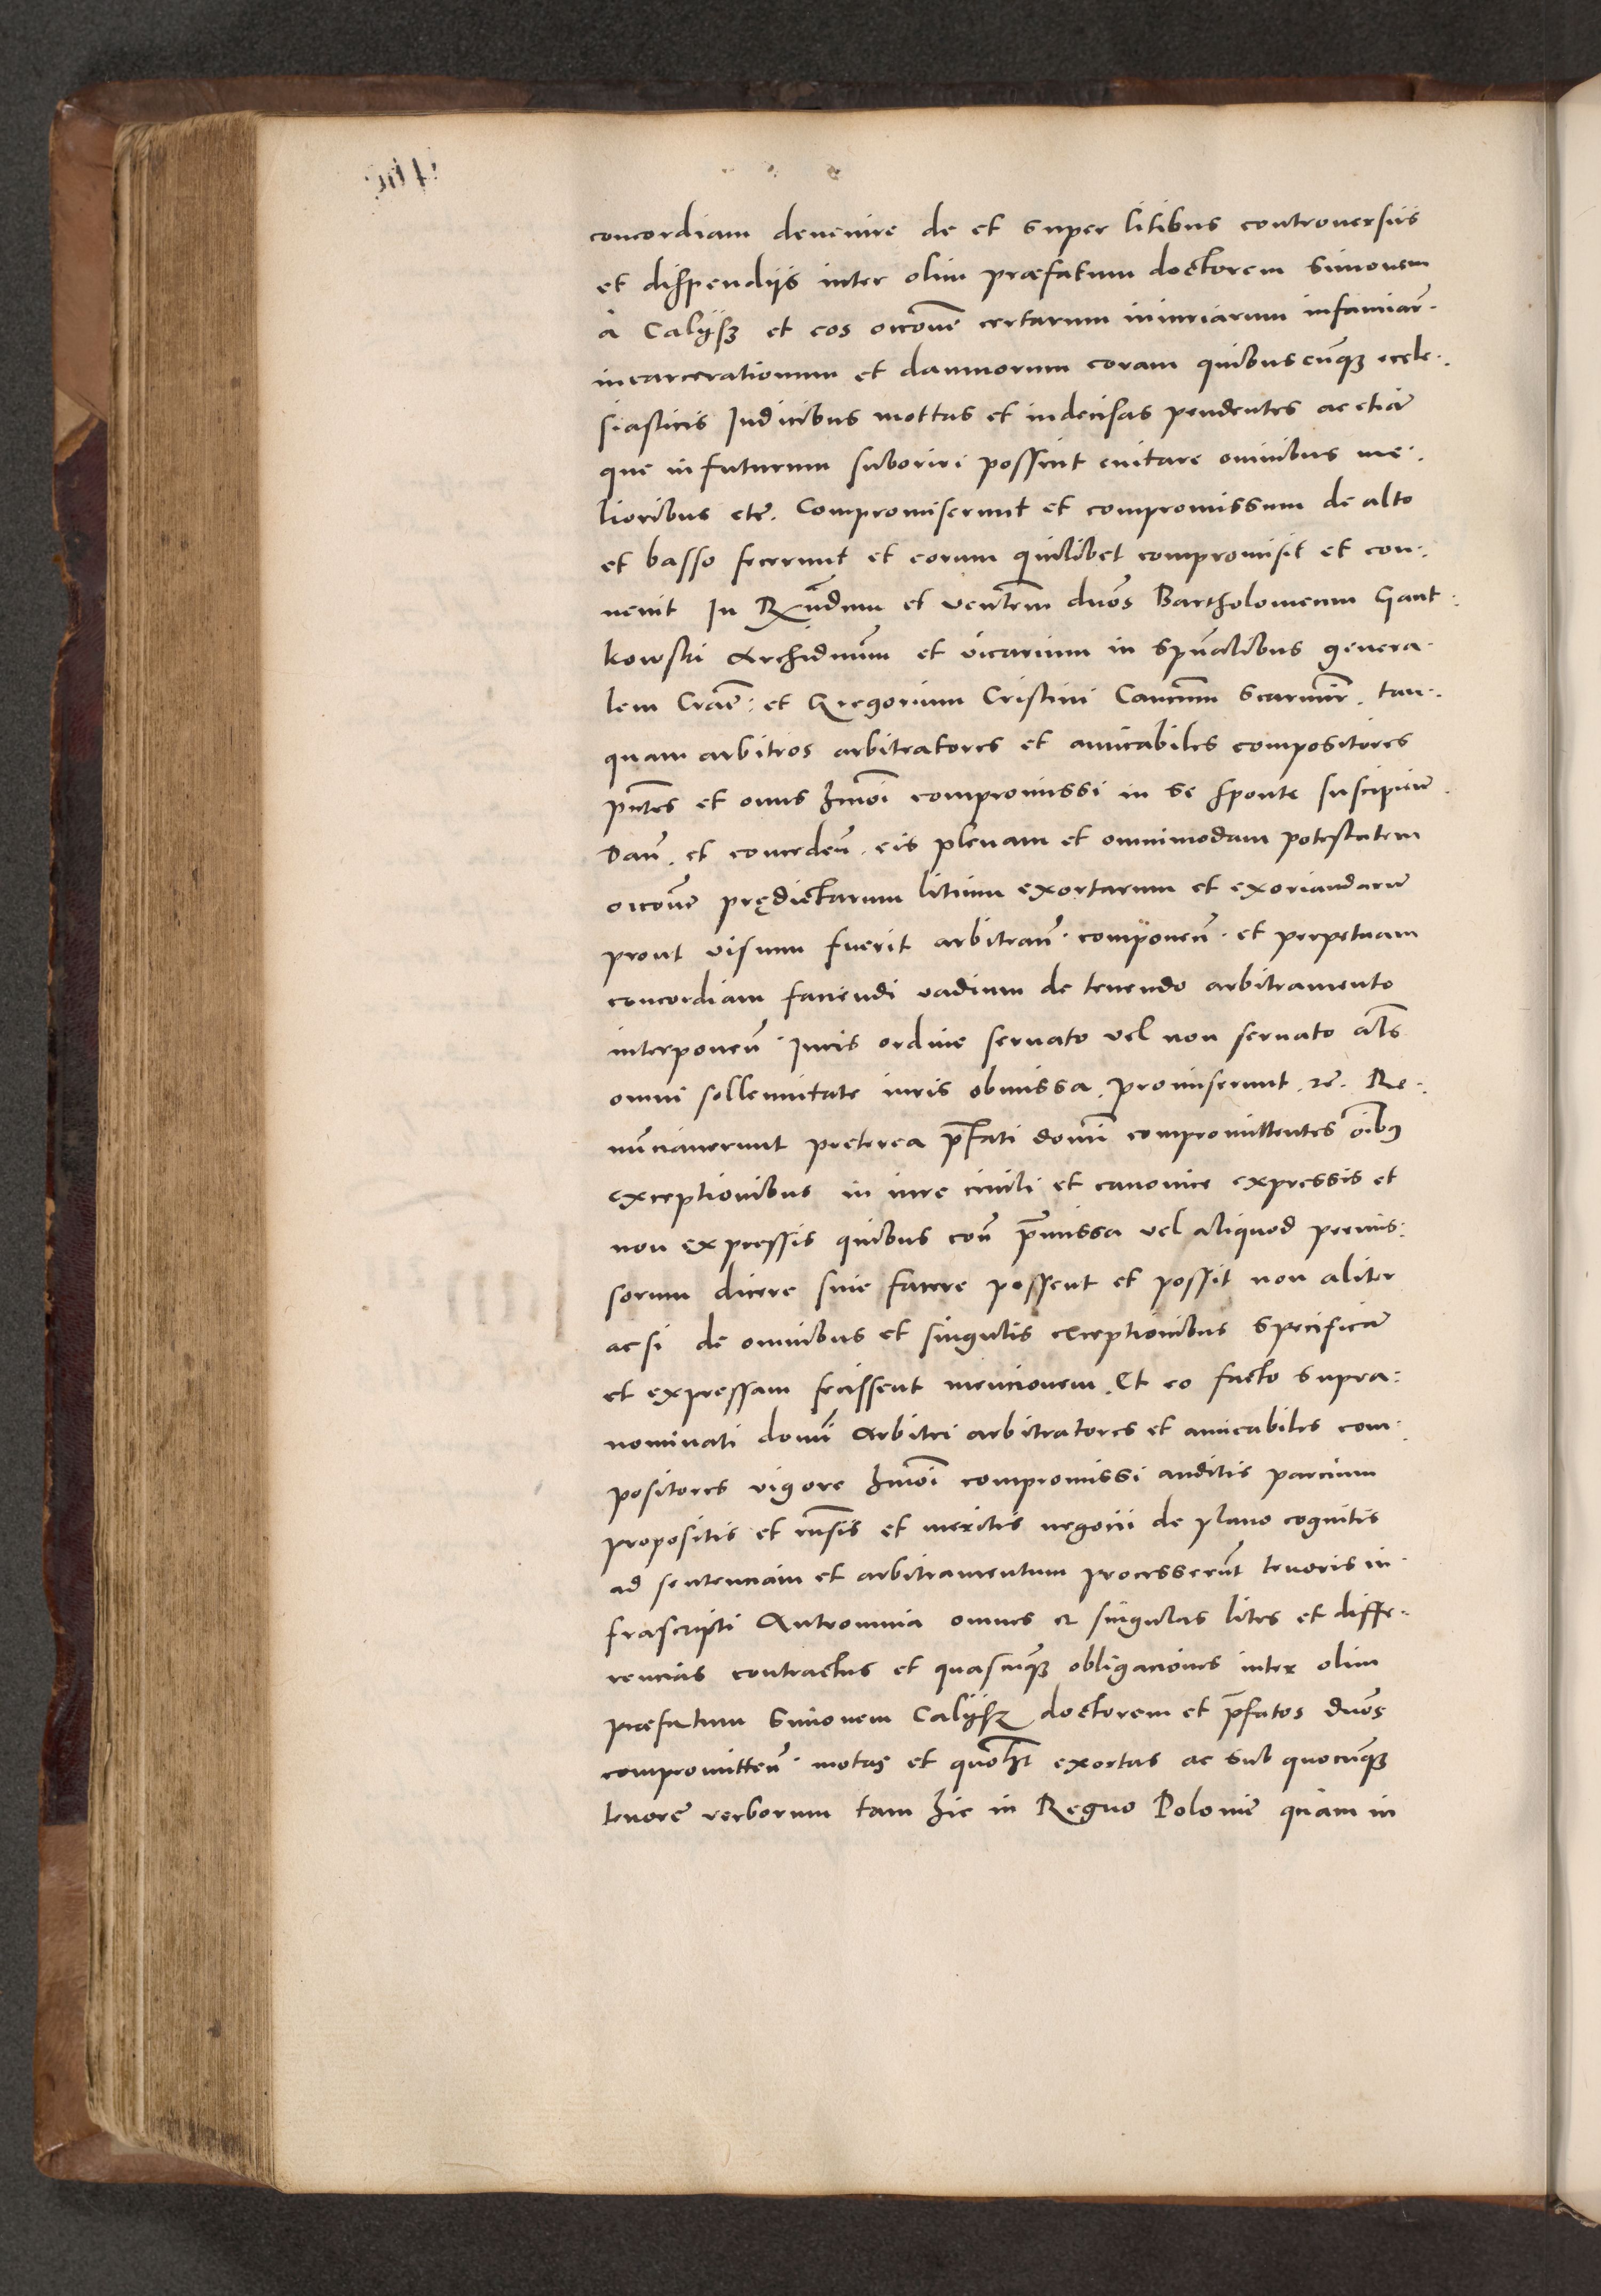 concordiam devenire de et super litibus controversiis
et dispendijs inter olim præfatum doctorem Simonem
à Calijsz et eos occoñe certarum iniuriarum infamiar̃.
incarcerationum et damnorum coram quibuscũq3 eccle.
siasticis Iudicibus mottas et indecisas pendentes ac etiã
que in futurum suboriri possint evitare omnibus me.
lioribus etc̃. Compromiserunt et compromissum de alto
et basso fecerunt et eorum quilibet compromisit et con.
venit In Rx̃ndum et veñtem dños Bartholomeum Gant.
kowski Archidnũm et vicarium in spũalibus genera.
lem Crac̃. et Gregorium Cristini Cancum̃ Scarmir̃. tan.
quam arbitros arbitratores et amicabiles compositores
p̃ntes et onus hmõi compromissi in se sponte suscipieñ.
Dañ. et concedeñ. eis plenam et omnimodam potestatem
occoñe prędictarum litium exortarum et exoriandarũ
prout visum fuerit arbitrañ. componeñ. et perpetuam
concordiam faciendi vadium de tenendo arbitramento
interponeñ. Iuris ordine servato vel non servato als̃
omni sollemnitate iuris obmissa. promiserunt. rc̃. Re.
nũnciaverunt preterea p̃fati domĩ compromittentes oĩbus
exceptionibus in iure civili et canonico expressis et
non expressis quibus coñ p̃missa vel aliquod premis:
sorum dicere sive facere possent et possit non aliter
ac si de omnibus et singulis exceptionibus specificã
et expressam fecissent mencionem. Et eo facto supra:
nominati domñi Arbitri arbitratores et amicabiles com.
positores vigore hmõi compromissi auditis parcium
propositis et rñsis et meritis negocii de plano cognitis
ad sentenciam et arbitramentum processerũnt tenoris in.
frascripti Antromnia omnes et singulas lites et diffe.
rencias contractus et quascũq3 obligaciones inter olim
præfatum Simonem Calijsz doctorem et p̃fatos dños
compromitteñ. motas et quom̃lt exortas ac sub quocũq3
tenore verborum tam hic in Regno Polonie quam in